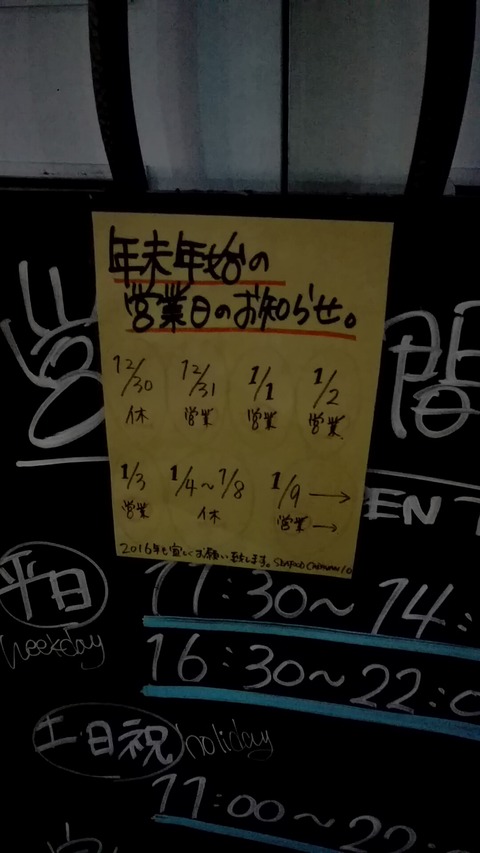 年末年始の
営業日のお知らせ。
12/30 12/31 1/1 1/2
休 営業 営業 営業
1/3 1/4~1/8 1/9 →
営業 休 営業→
2016年も宜しくお願い致します。
営 間
OPEN T
平日 11:30~14:
weekday 16:30~22:0
土・日祝 holiday
11:00~22: